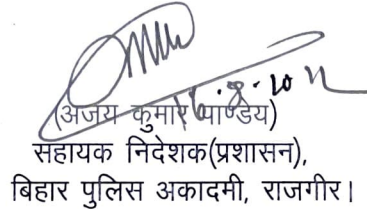 16.8.2022
(अजय कुमार पाण्डेय)
सहायक निदेशक(प्रशासन),
बिहार पुलिस अकादमी, राजगीर।